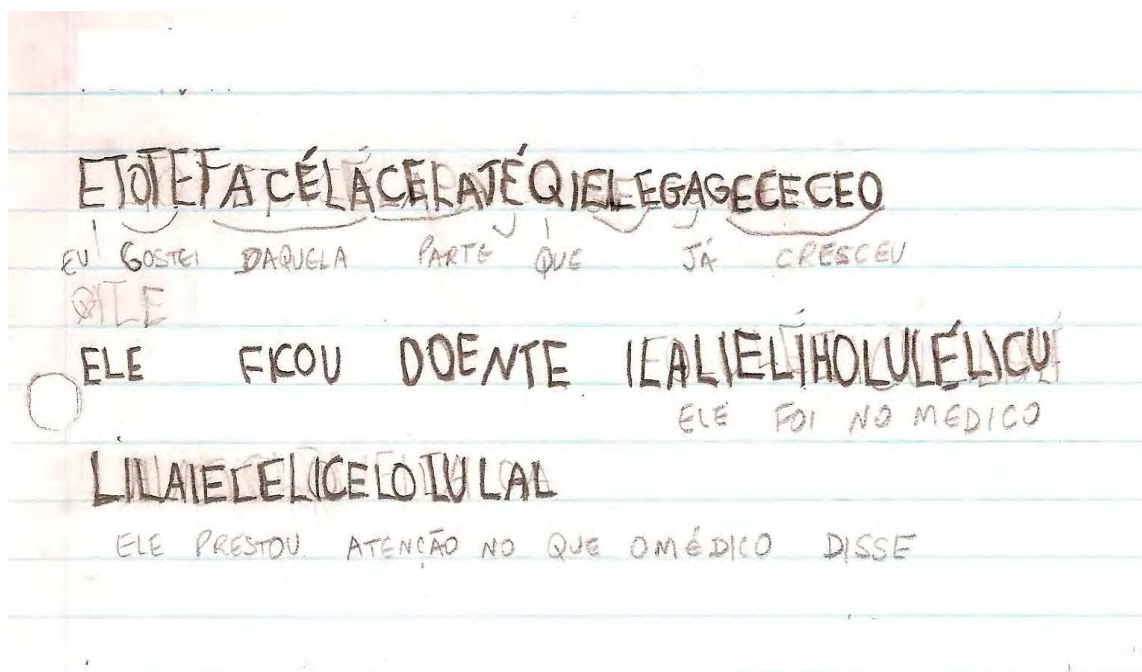 ETOTEFACÉLÁCERATÉQIELEGAGECECEO
EU GOSTEI DAQUELA PARTE QUE JÁ CRESCEU
QILE
ELE FICOU DOENTE IEALIELIHOLULÉLICU
ELE FOI NO MEDICO
LILAIECELICELOIULAL
ELE PRESTOU ATENÇÃO NO QUE O MÉDICO DISSE